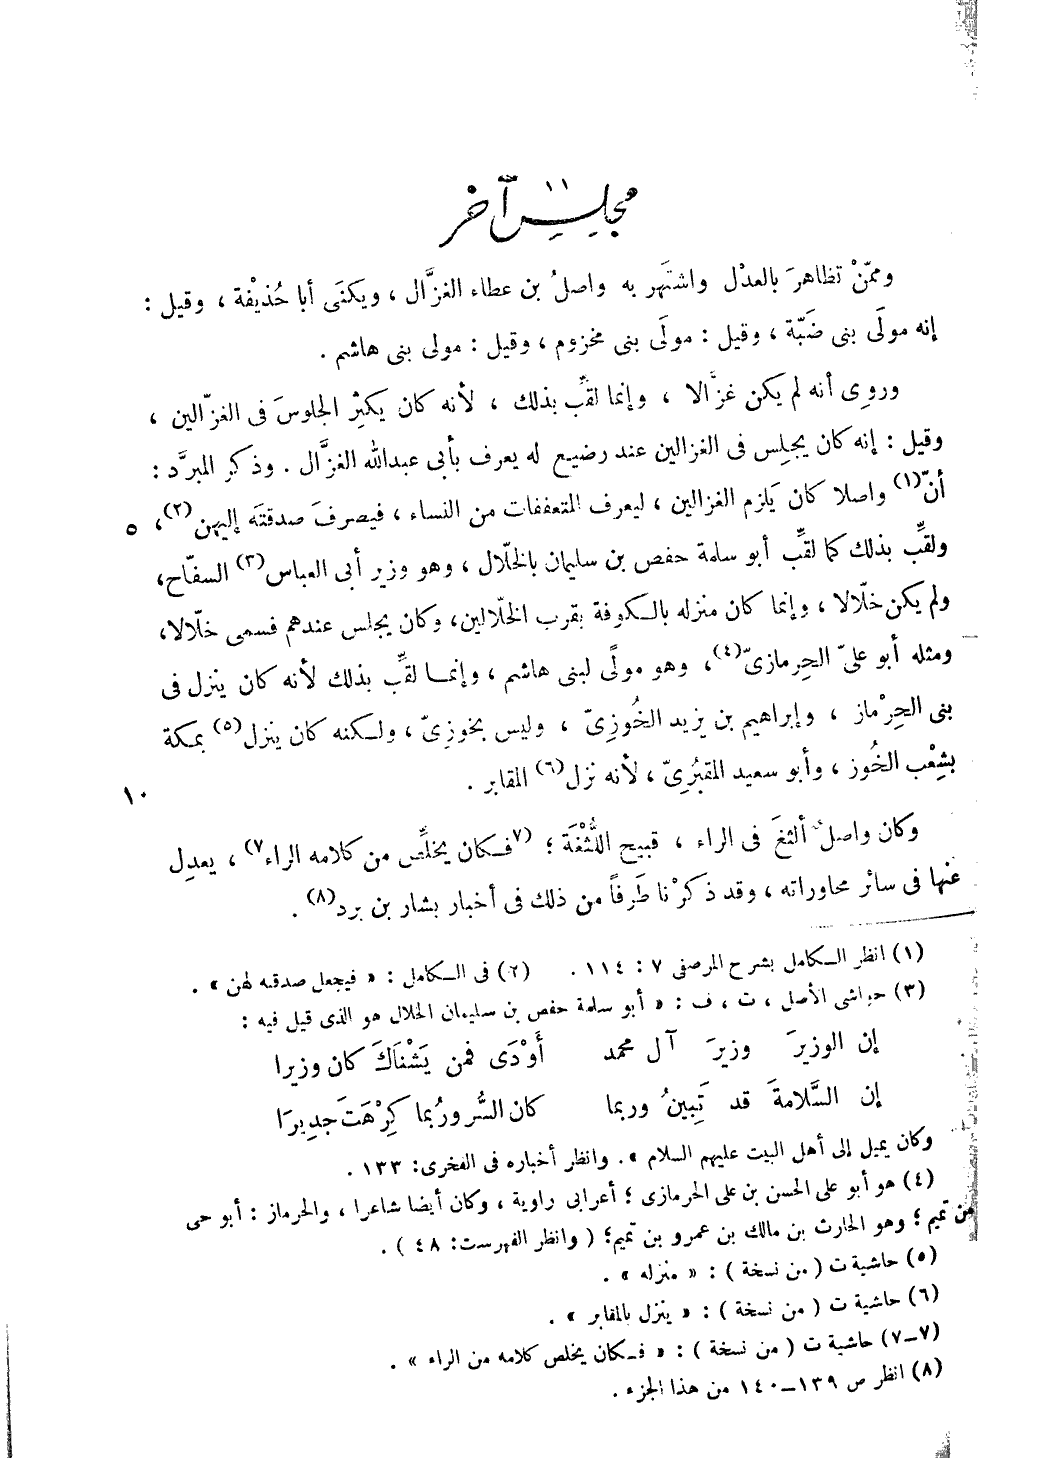 ١١
مجلس آخر
وممّنْ تظاهرَ بالعدْل واشتَهر به واصلُ بن عطاء الغزَّال ، ويكنَى أبا حُذيْفة ، وقيل :
إنه مولَى بنى ضَبّة ، وقيل : مولَى بنى مخزوم ، وقيل : مولى بنى هاشم .
وروِى أنه لم يكن غزَّالا ، وإنما لقِّب بذلك ، لأنه كان يكثِر الجلوسَ فى الغزّالين ،
وقيل : إنه كان يجلِس فى الغزالين عند رضيع له يعرف بأبى عبدالله الغزَّال . وذكر المبرَّد :
أنّ(١) واصلا كان يَلزم الغزالين ، ليعرف المتعففات من النساء ، فيصرفَ صدقتَه إليهن(٢)،
٥
ولقِّب بذلك كما لقِّب أبو سلمة حفص بن سليمان بالخلّال ، وهو وزير أبى العباس(٣) السفّاح،
ولم يكن خلّالا ، وإنما كان منزله بالكوفة بقرب الخلّالين، وكان يجلس عندهم فسمى خلّالا،
ومثله أبو علىّ الحِرمازىّ(٤)، وهو مولًى لبنى هاشم ، وإنما لقِّب بذلك لأنه كان ينزل فى
بنى الحِرْماز ، وإبراهيم بن يزيد الخُوزِىّ ، وليس بخوزِىّ ، ولكنه كان ينزل(٥) بمكة
بشِعْب الخُوز ، وأبو سعيد المقبُرِىّ ، لأنه نزل(٦) المقابر .
١٠
وكان واصلٌ ألثغَ فى الراء ، قبيح اللُّثْغَة ؛ (٧فكان يخلِّص من كلامه الراء٧) ، يعدِل
عنها فى سائر محاوراته ، وقد ذكرْنا طَرفاً من ذلك فى أخبار بشار بن برد(٨) .
(١) انظر الكامل بشرح المرصفى ٧ : ١١٤ . (٢) فى الكامل : « فيجعل صدقته لهن » .
(٣) حواشى الأصل ، ت ، ف : « أبو سلمة حفص بن سليمان الخلال هو الذى قيل فيه :
إن الوزيرَ وزيرَ آل محمد أَوْدَى فمن يَشْنَاكَ كان وزيرا
إن السَّلامةَ قد تَبِينُ وربما كان السُّرورُ بما كِرْهَتَ جديرَا
وكان يميل إلى أهل البيت عليهم السلام ». وانظر أخباره فى الفخرى: ١٣٣ .
(٤) هو أبو على الحسن بن على الحرمازى ؛ أعرابى راوية ، وكان أيضا شاعرا ، والحرماز : أبو حى
من تميم ؛ وهو الحارث بن مالك بن عمرو بن تميم؛ ( وانظر الفهرست: ٤٨ ) .
(٥) حاشية ت ( من نسخة ) : « منزله » .
(٦) حاشية ت ( من نسخة ) : « ينزل بالمقابر » .
(٧ــ٧) حاشية ت ( من نسخة ) : « فكان يخلص كلامه من الراء » .
(٨) انظر ص ١٣٩ــ١٤٠ من هذا الجزء .